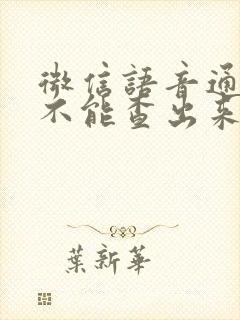 微信語音通
不能查出來
葉新華